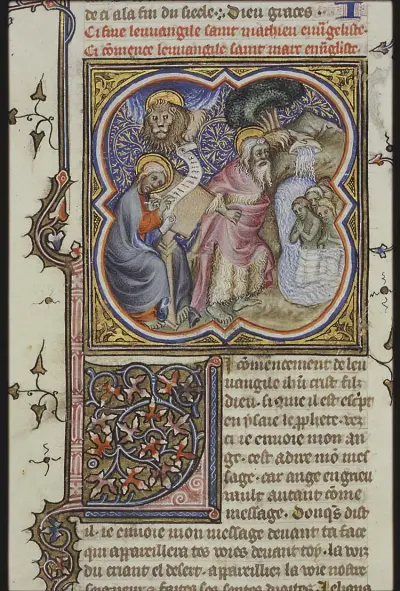 de ci a la fin du siecle. Dieu graces.
Ci fine leuuangile saint mathieu euvgeliste
Ci cōmence leuuangile saint marc euvgliste.
I cōmencement de leu
uangile ihū crist filz
dieu. si que il est escrit
en ysaie le pphete. vez
ci ie enuoie mon an
ge. cest adire mō mes
sage. car ange en grieu
vault autant cōme
message. Donqs dist
il. ie enuoie mon message deuant ta face
qui apareillera tes voies deuant toy. la voiz
du criant el desert. apareilliez la voie nostre
seigneur et faites ses sentes droites. Iehans